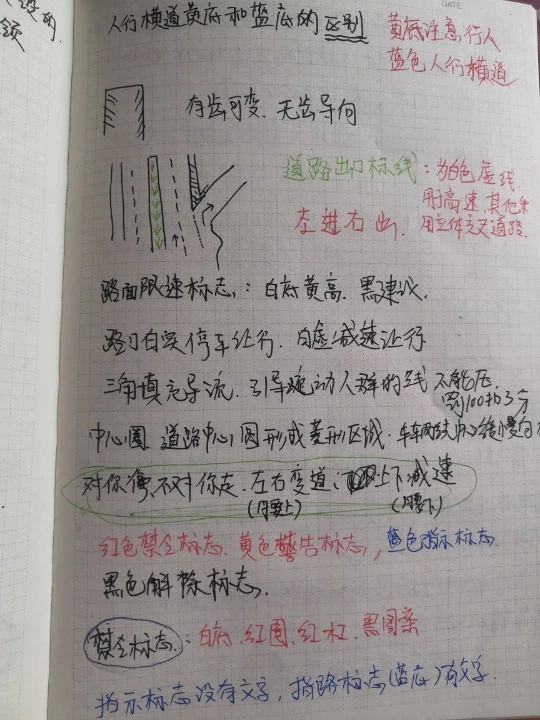 人行横道黄底和蓝底的区别
黄底注意行人
蓝色人行横道
有齿可变.无齿导向
道路出口标线:为白色虚线
用高速.其他采
左进右出.
用立体交叉道路.
路面限速标志:白底黄高.黑建议.
路口白实停车让行.白虚减速让行
三角填充导流.引导 动人群的线不能压.
罚100扣3分
中心圈.道路中心圆形或菱形区域.
对你像.不对你走.左右变道 上下减速
(月要上)
(月要下)
红色禁令标志.黄色警告标志,蓝色指示标志.
黑色解除标志.
禁令标志:白底.红圈.红杠.黑图案
指示标志没有文字,指路标志(蓝底)有文字.